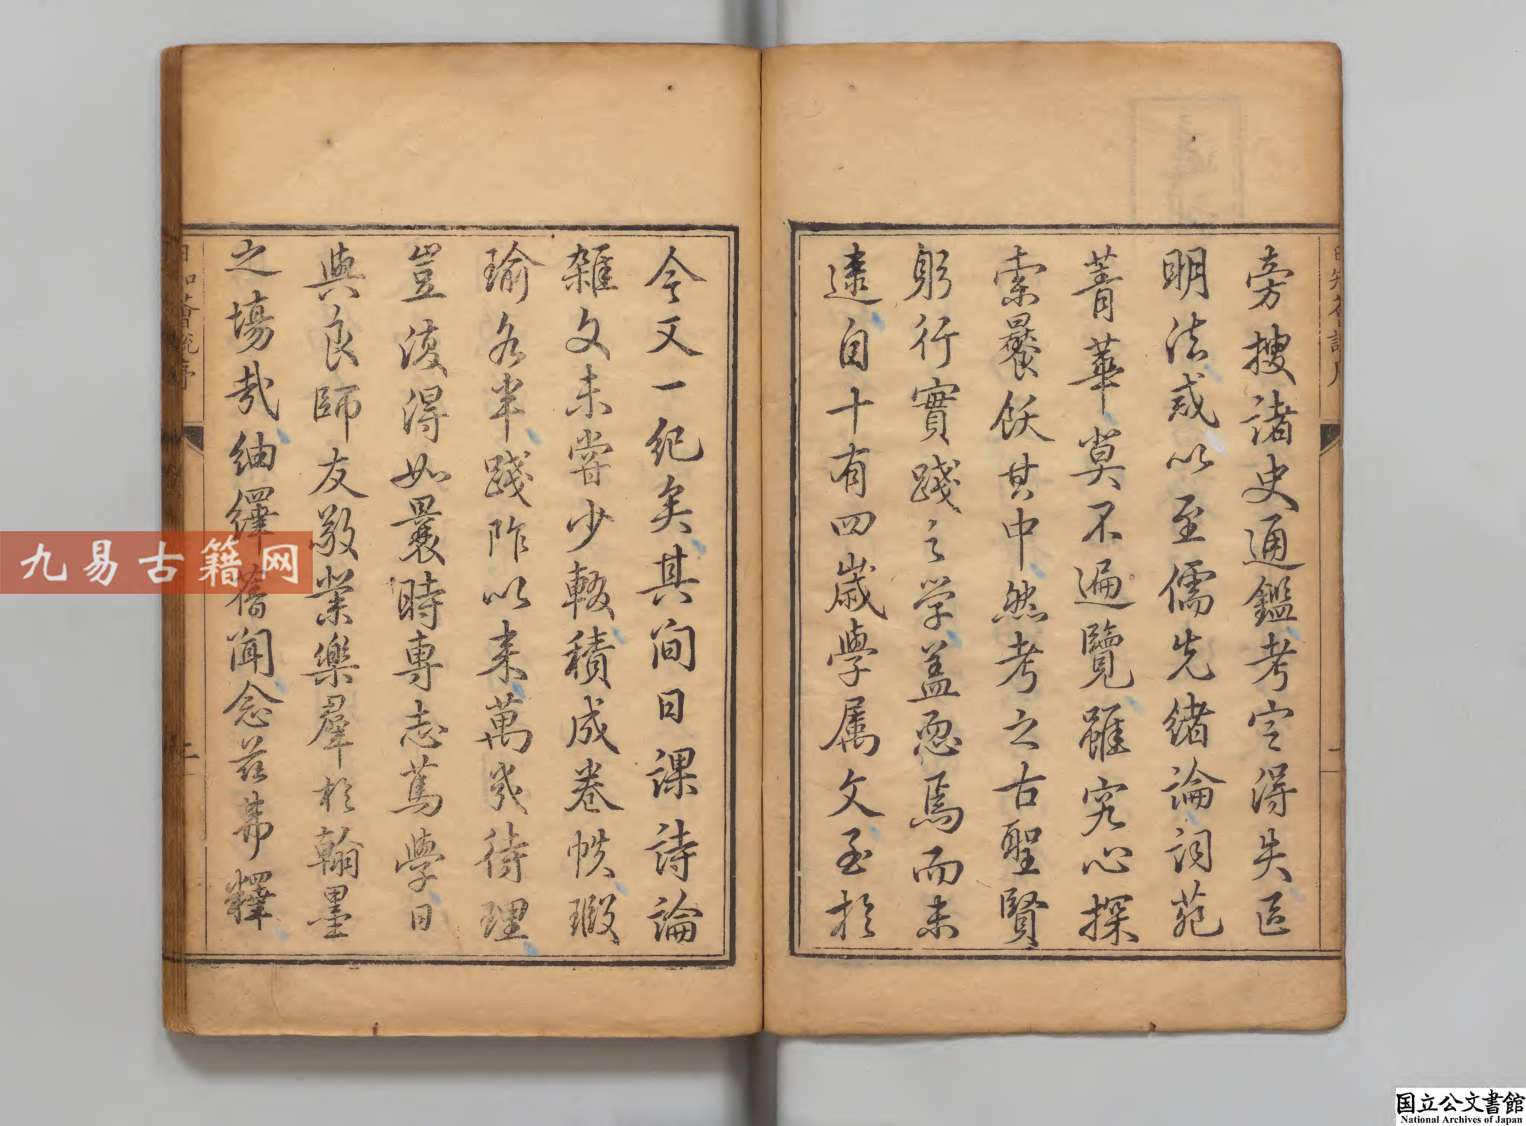 旁搜諸史通鑑考定得失區
明法戒以至儒先緒論詞苑
菁華莫不遍覽雖究心探
索饜飫其中然考之古聖賢
躬行實踐之学蓋恧焉而未
逮自十有四歲學属文至於
今又一紀矣其间日課詩論
雜文未嘗少輟積成卷帙瑕
瑜各半踐阼以来萬幾待理
豈復得如曩時專志篤學日
與良師友敬業樂羣於翰墨
之場哉紬繹舊聞念茲弗釋
日知薈說序
九易古籍网
国立公文書館
National Archives of Japan